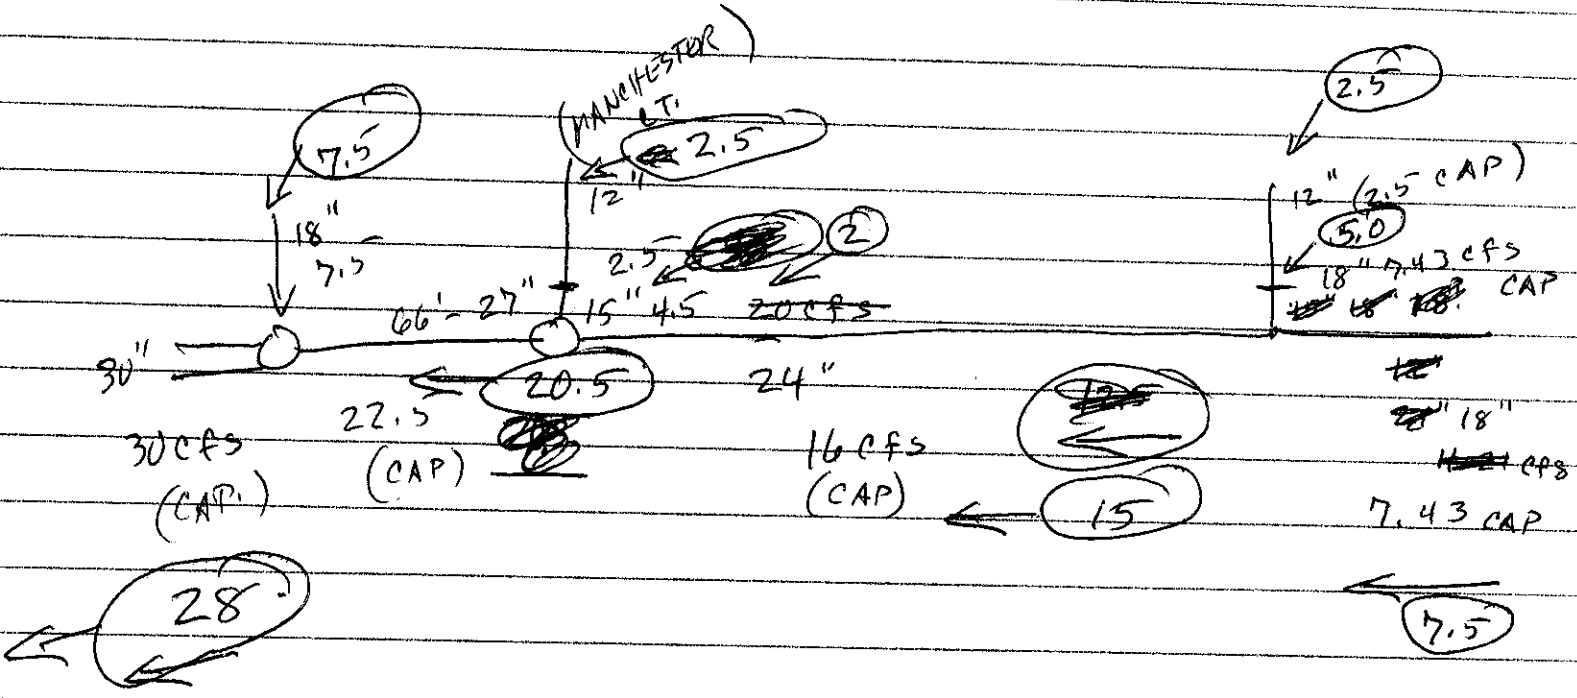 (MANCHESTOR
CT.)
2.5
7.5
2.5
12"
12" (2.5 CAP)
18"
7.5
2.5
2
5.0
18" 7.43 cfs
CAP
66' - 27"
15" 4.5
20 cfs
30"
20.5
24"
12.5
22.5
(CAP)
18"
30 cfs
(CAP.)
16 cfs
(CAP)
cfs
15
7.43 CAP
28
7.5